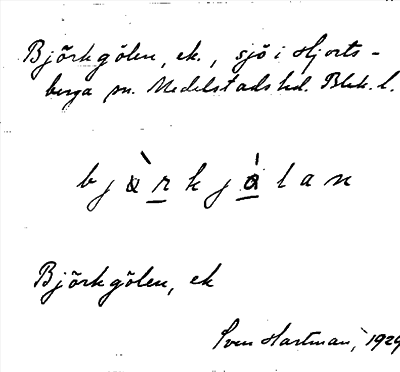 Björkgölen, ek., sjö i Hjorts-
berga sn. Medelstads hd. Blek. l.
bjàrkjàlan
Björkgölen, ek
Sven Hartman, 1929